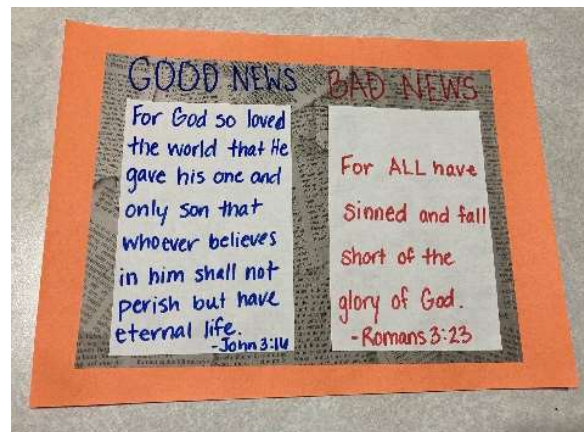 GOOD NEWS
For God so loved
the world that He
gave his one and
only son that
whoever believes
in him shall not
perish but have
eternal life.
-John 3:16
BAD NEWS
For ALL have
sinned and fall
short of the
glory of God.
-Romans 3:23